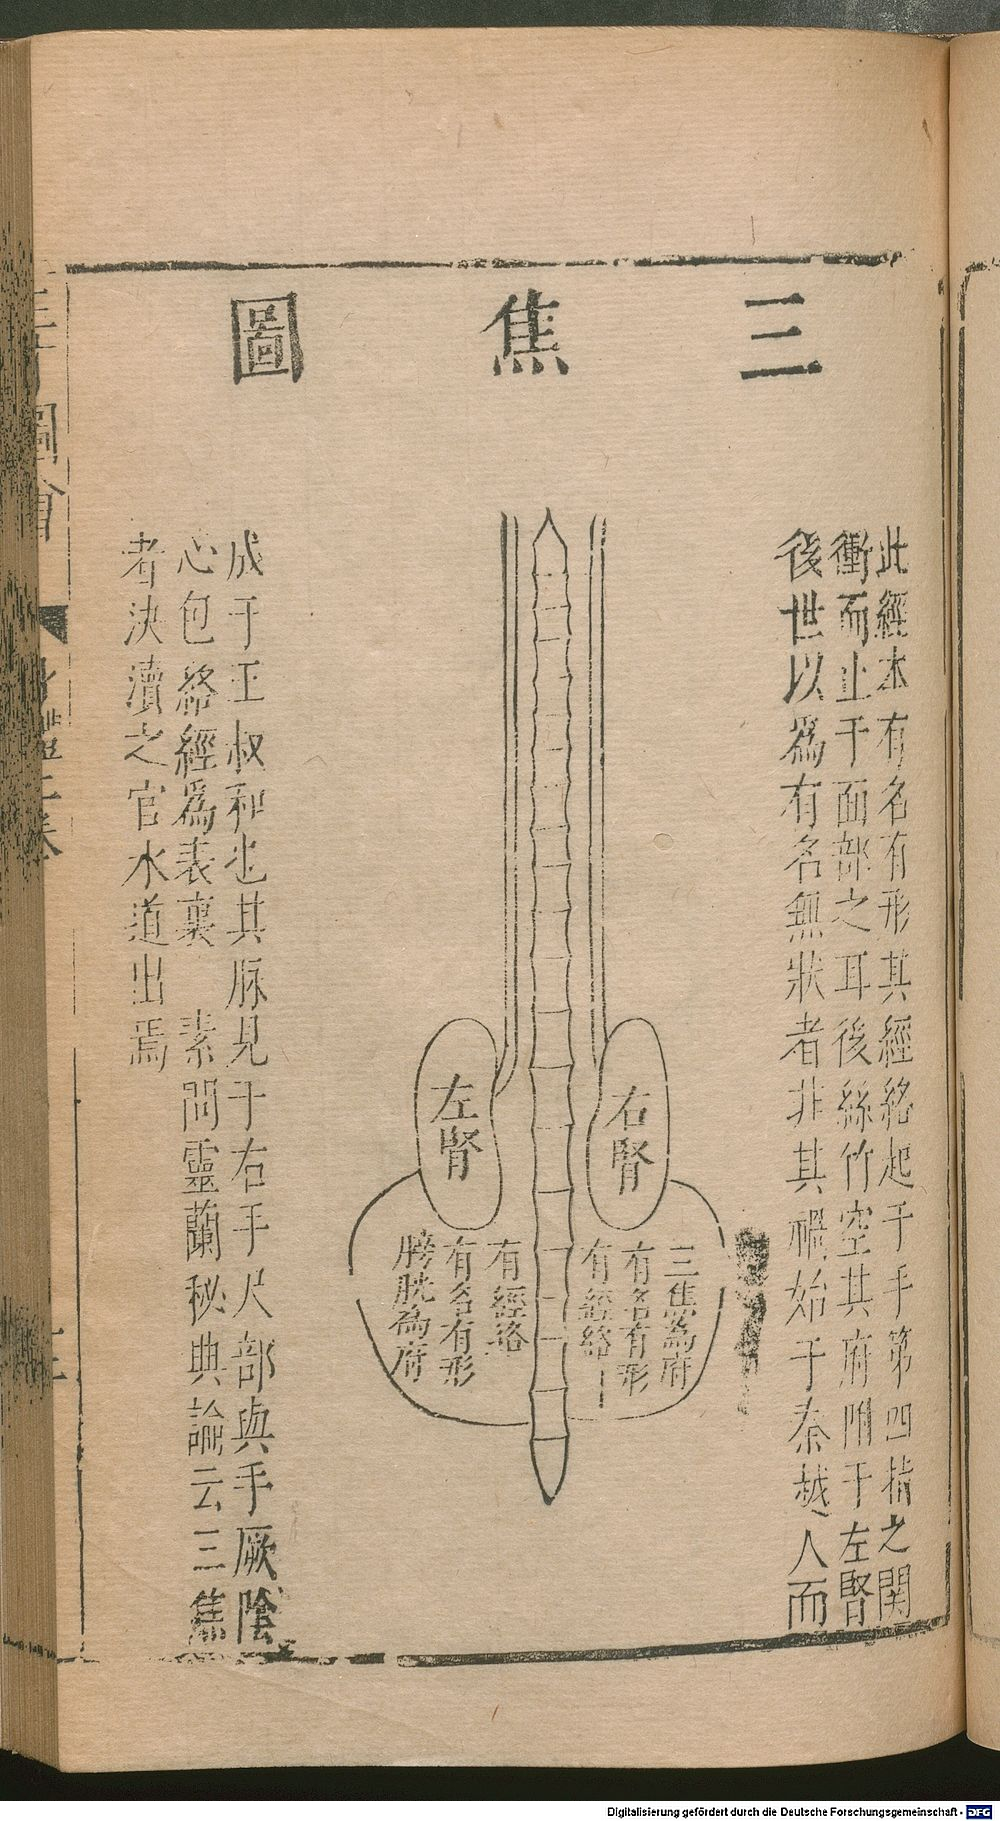 三焦圖
此經本有名有形其經絡起于手第四指之關
衝而止于面部之耳後絲竹空其府附于左腎
後世以爲有名無狀者非其禍始于秦越人而
右腎
三焦為府
有名有形
有經絡
左腎
有經絡
有名有形
膀胱為府
成于王叔和也其脉見于右手尺部與手厥陰
心包絡經爲表裏 素問靈蘭秘典論云三焦
者決瀆之官水道出焉
圖會
Digitalisierung gefördert durch die Deutsche Forschungsgemeinschaft - DFG